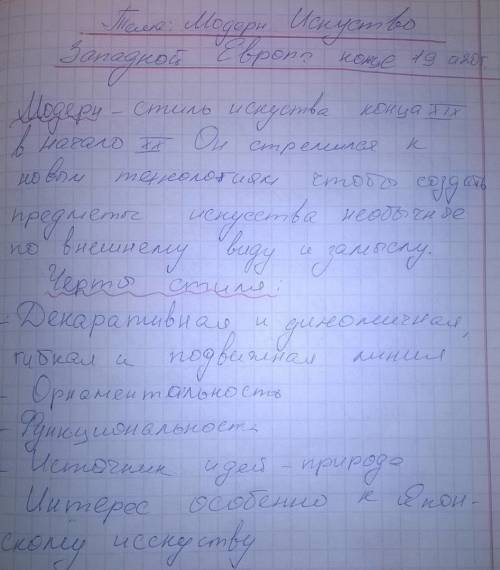 Тема: Модерн. Искуство
Западной Европы конце 19
Модерн – стиль искуства конца XIX
в начало XX Он стремился к
новым технологиям чтобы создать
предметы искусства необычное
по внешнему виду и замыслу.
Черты стиля:
- Декаративная и динамичная,
гибкая и подвижная линия
- Орнаментальность
- Функциональность
- Источник идей – природа
Интерес особенно к Япон-
скому исскуству